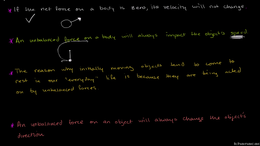 If the net force on a body is zero, its velocity will not change
An unbalanced force on a body will always impact the object's speed
The reason why initially moving objects tend to come to
rest in our "everyday" life is because they are being acted
on by unbalanced forces
An unbalanced force on an object will always change the object's
direction